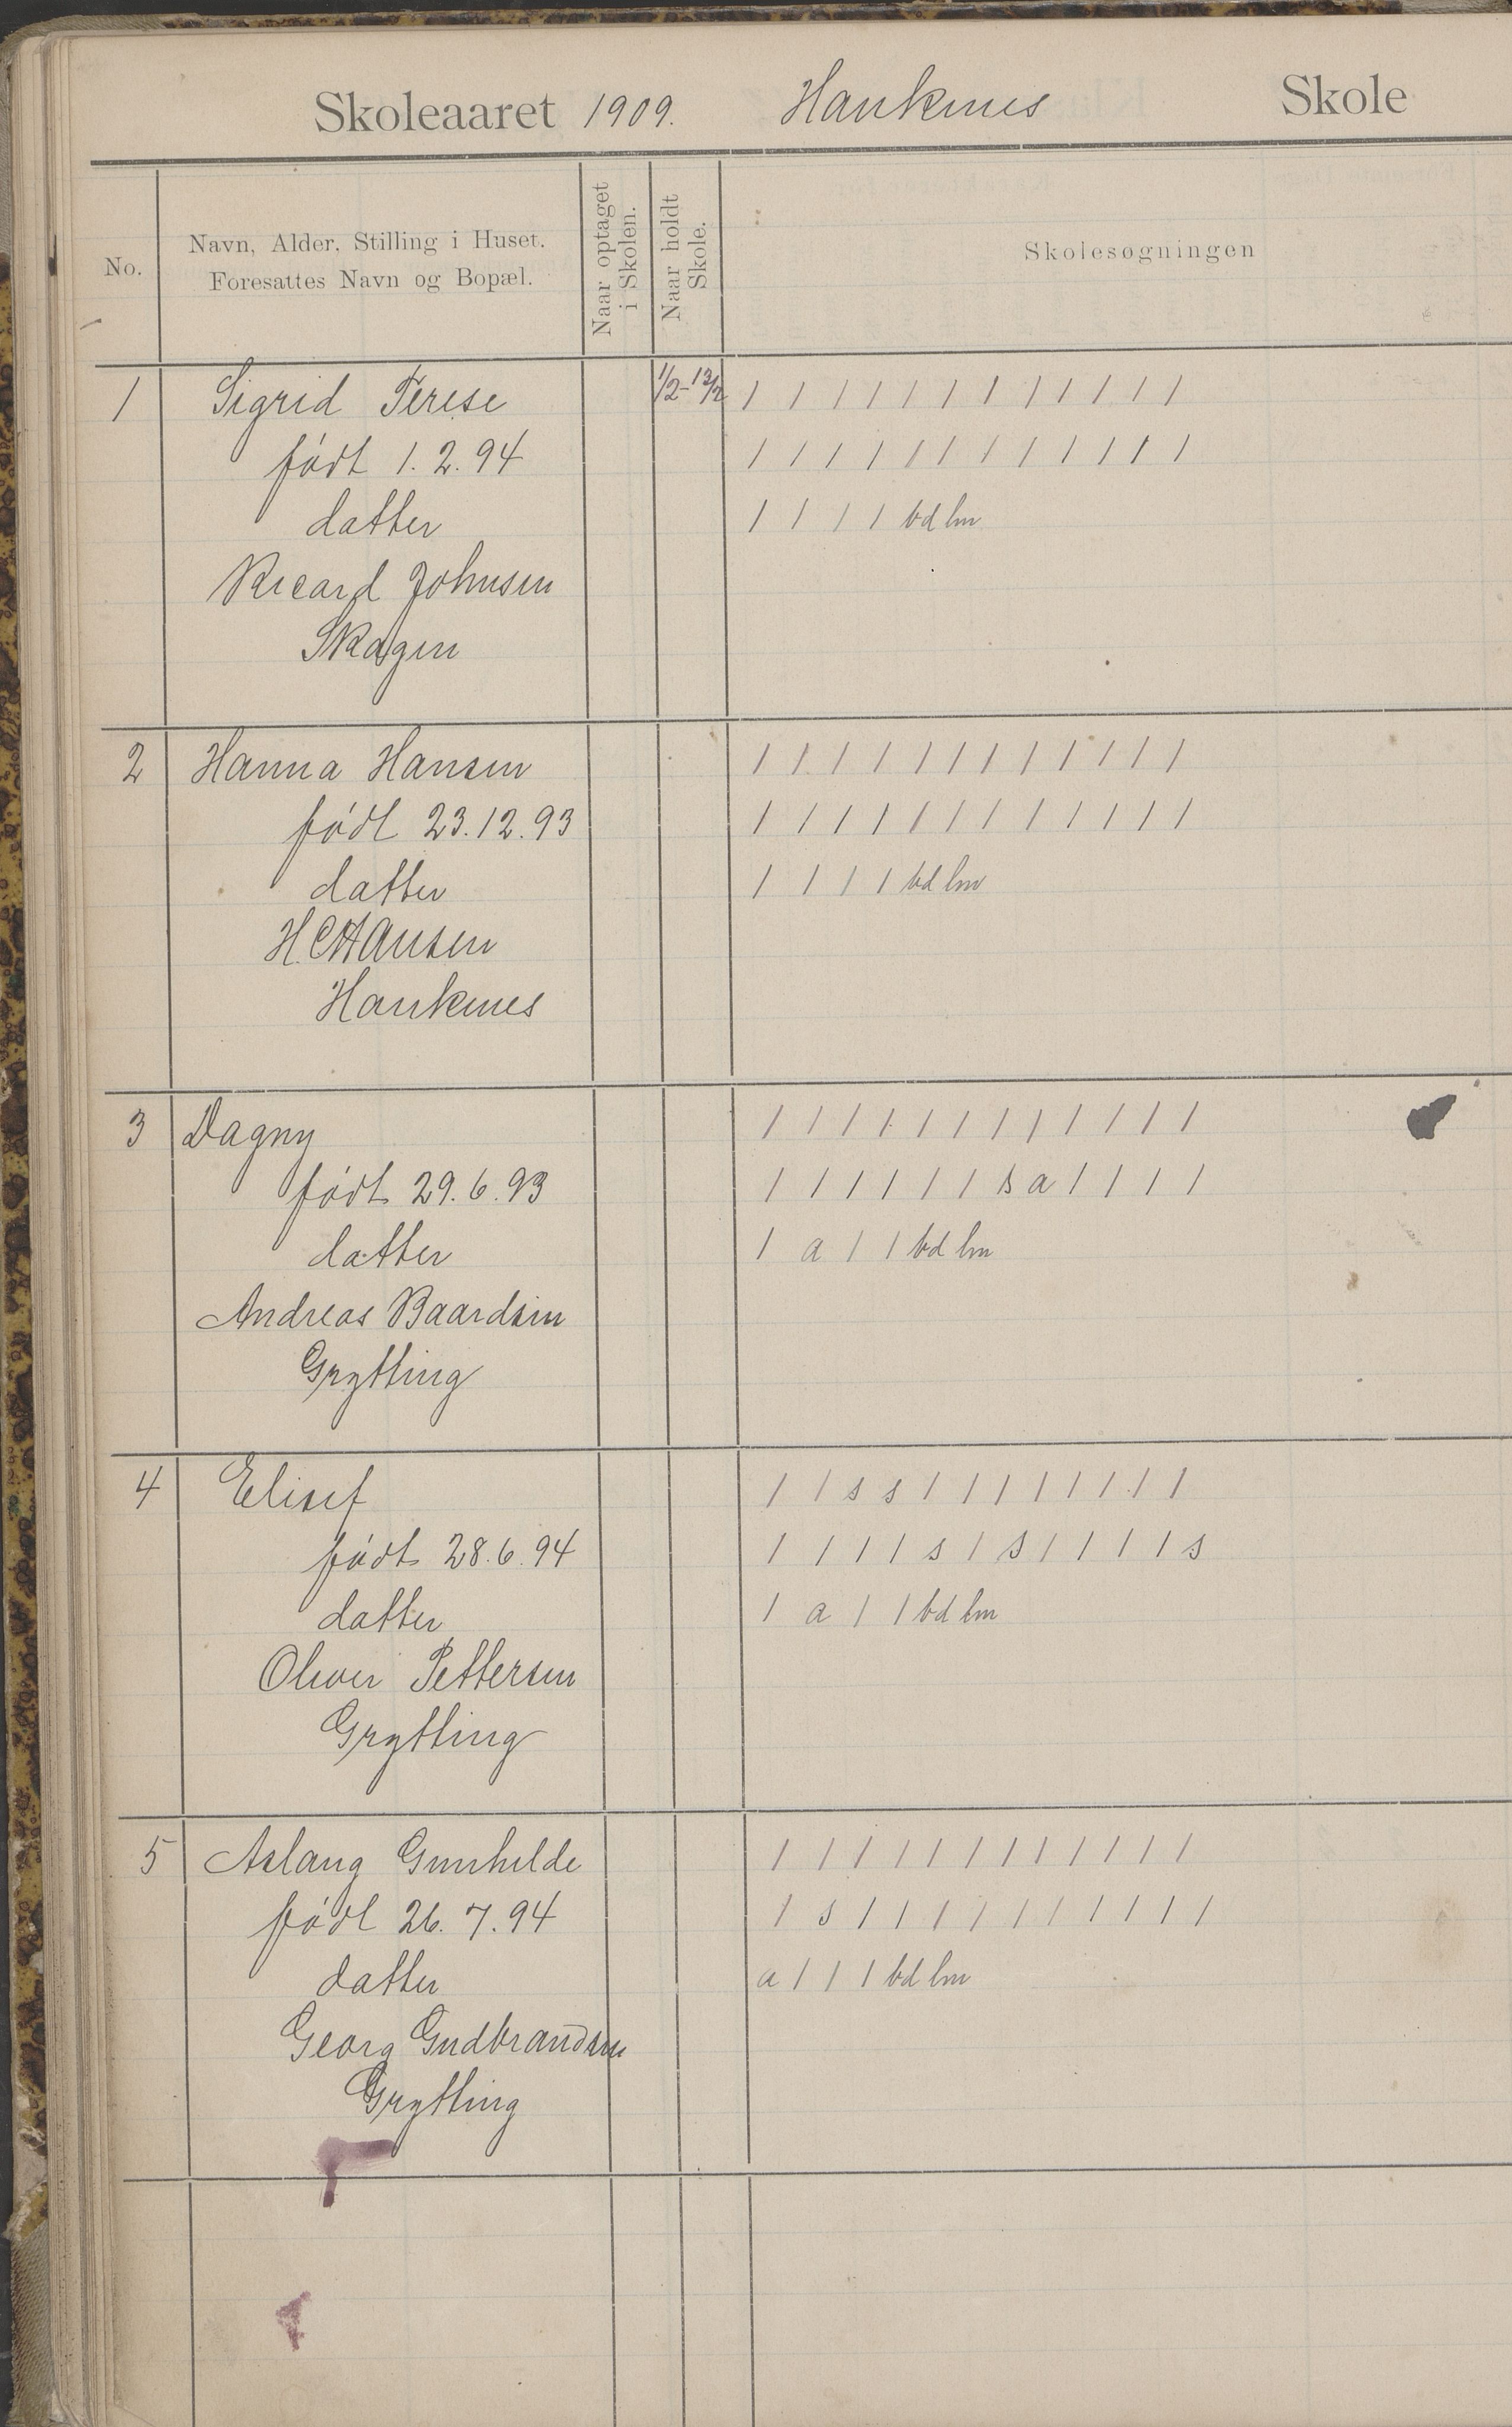 Skoleaaret 1909. Haukenes Skole
No.
Navn, Alder, Stilling i Huset.
Foresattes Navn og Bopæl.
Naar optaget
i Skolen.
Naar holdt
Skole.
Skolesøgningen
1 Sigrid Terese 1/2-12/2 / / / / / / / / / / / /
født 1.2.94 / / / / / / / / / / / /
datter / / / / bd lm
Ricard Johnsen
Skagen
2 Hanna Hansen / / / / / / / / / / / /
født 23.12.93 / / / / / / / / / / / /
datter / / / / bd lm
H.C Hansen
Haukenes
3 Dagny / / / / / / / / / / / /
født 29.6.93 / / / / / / s a / / / /
datter / a / / bd lm
Andreas Baardsen
Grytting
4 Elisef / / s s / / / / / / / /
født 28.6.94 / / / / s / s / / / / s
datter / a / / bd lm
Oliver Pettersen
Grytting
5 Aslaug Gunhilde / / / / / / / / / / / /
født 26.7.94 / s / / / / / / / / / /
datter a / / / bd lm
Georg Gudbrandsen
Grytting